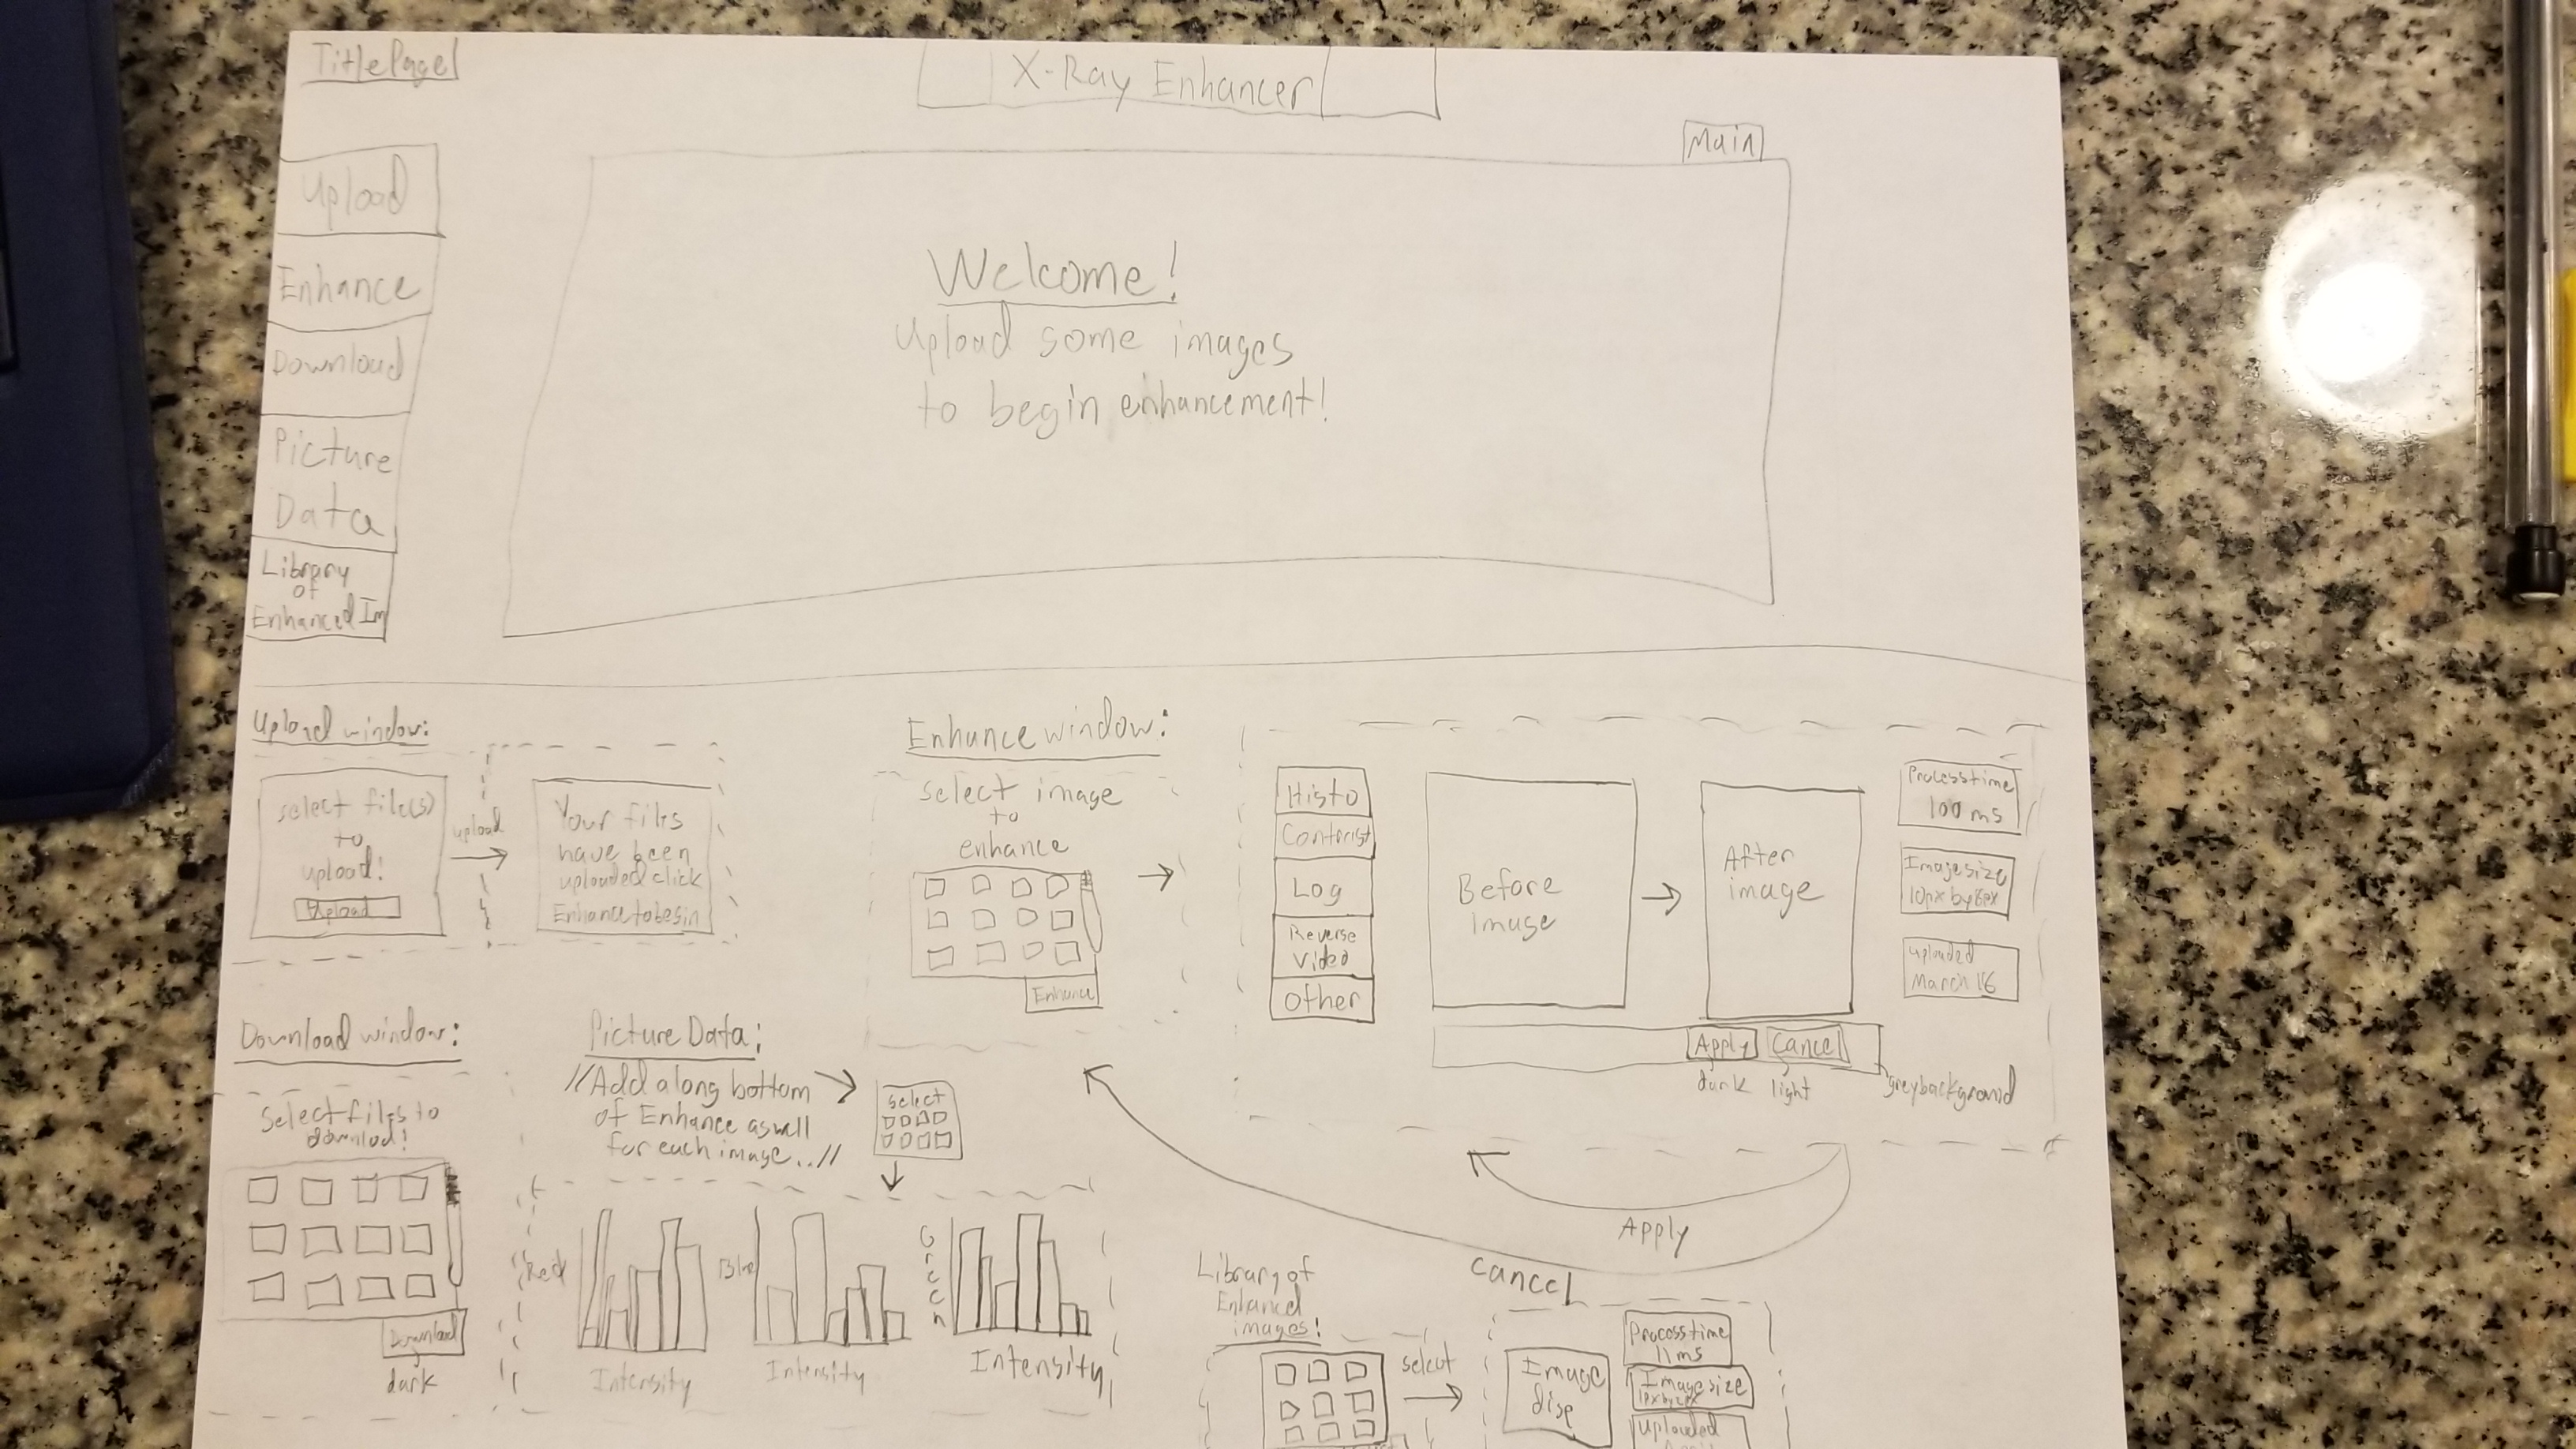 Title Page
X-Ray Enhancer
Main
Upload
Enhance
Download
Picture
Data
Library
of
Enhanced Im
Welcome!
Upload some images
to begin enhancement!
Upload window:
select file(s)
to
upload!
Upload
upload
Your files
have been
uploaded click
Enhance to begin
Enhance window:
select image
to
enhance
Enhance
Histo
Contrast
Log
Reverse
Video
Other
Before
Image
After
image
Process time
100 ms
Image size
10px by 8px
uploaded
March 16
Apply
Cancel
dark
light
grey background
Apply
Cancel
Download window:
Select files to
downlod!
Download
dark
Picture Data:
//Add along bottom
of Enhance as well
for each image..//
select
Red
Intensity
Blue
Intensity
Green
Intensity
Library of
Enhanced
images!
select
Image
disp
Process time
11 ms
Image size
Uploaded